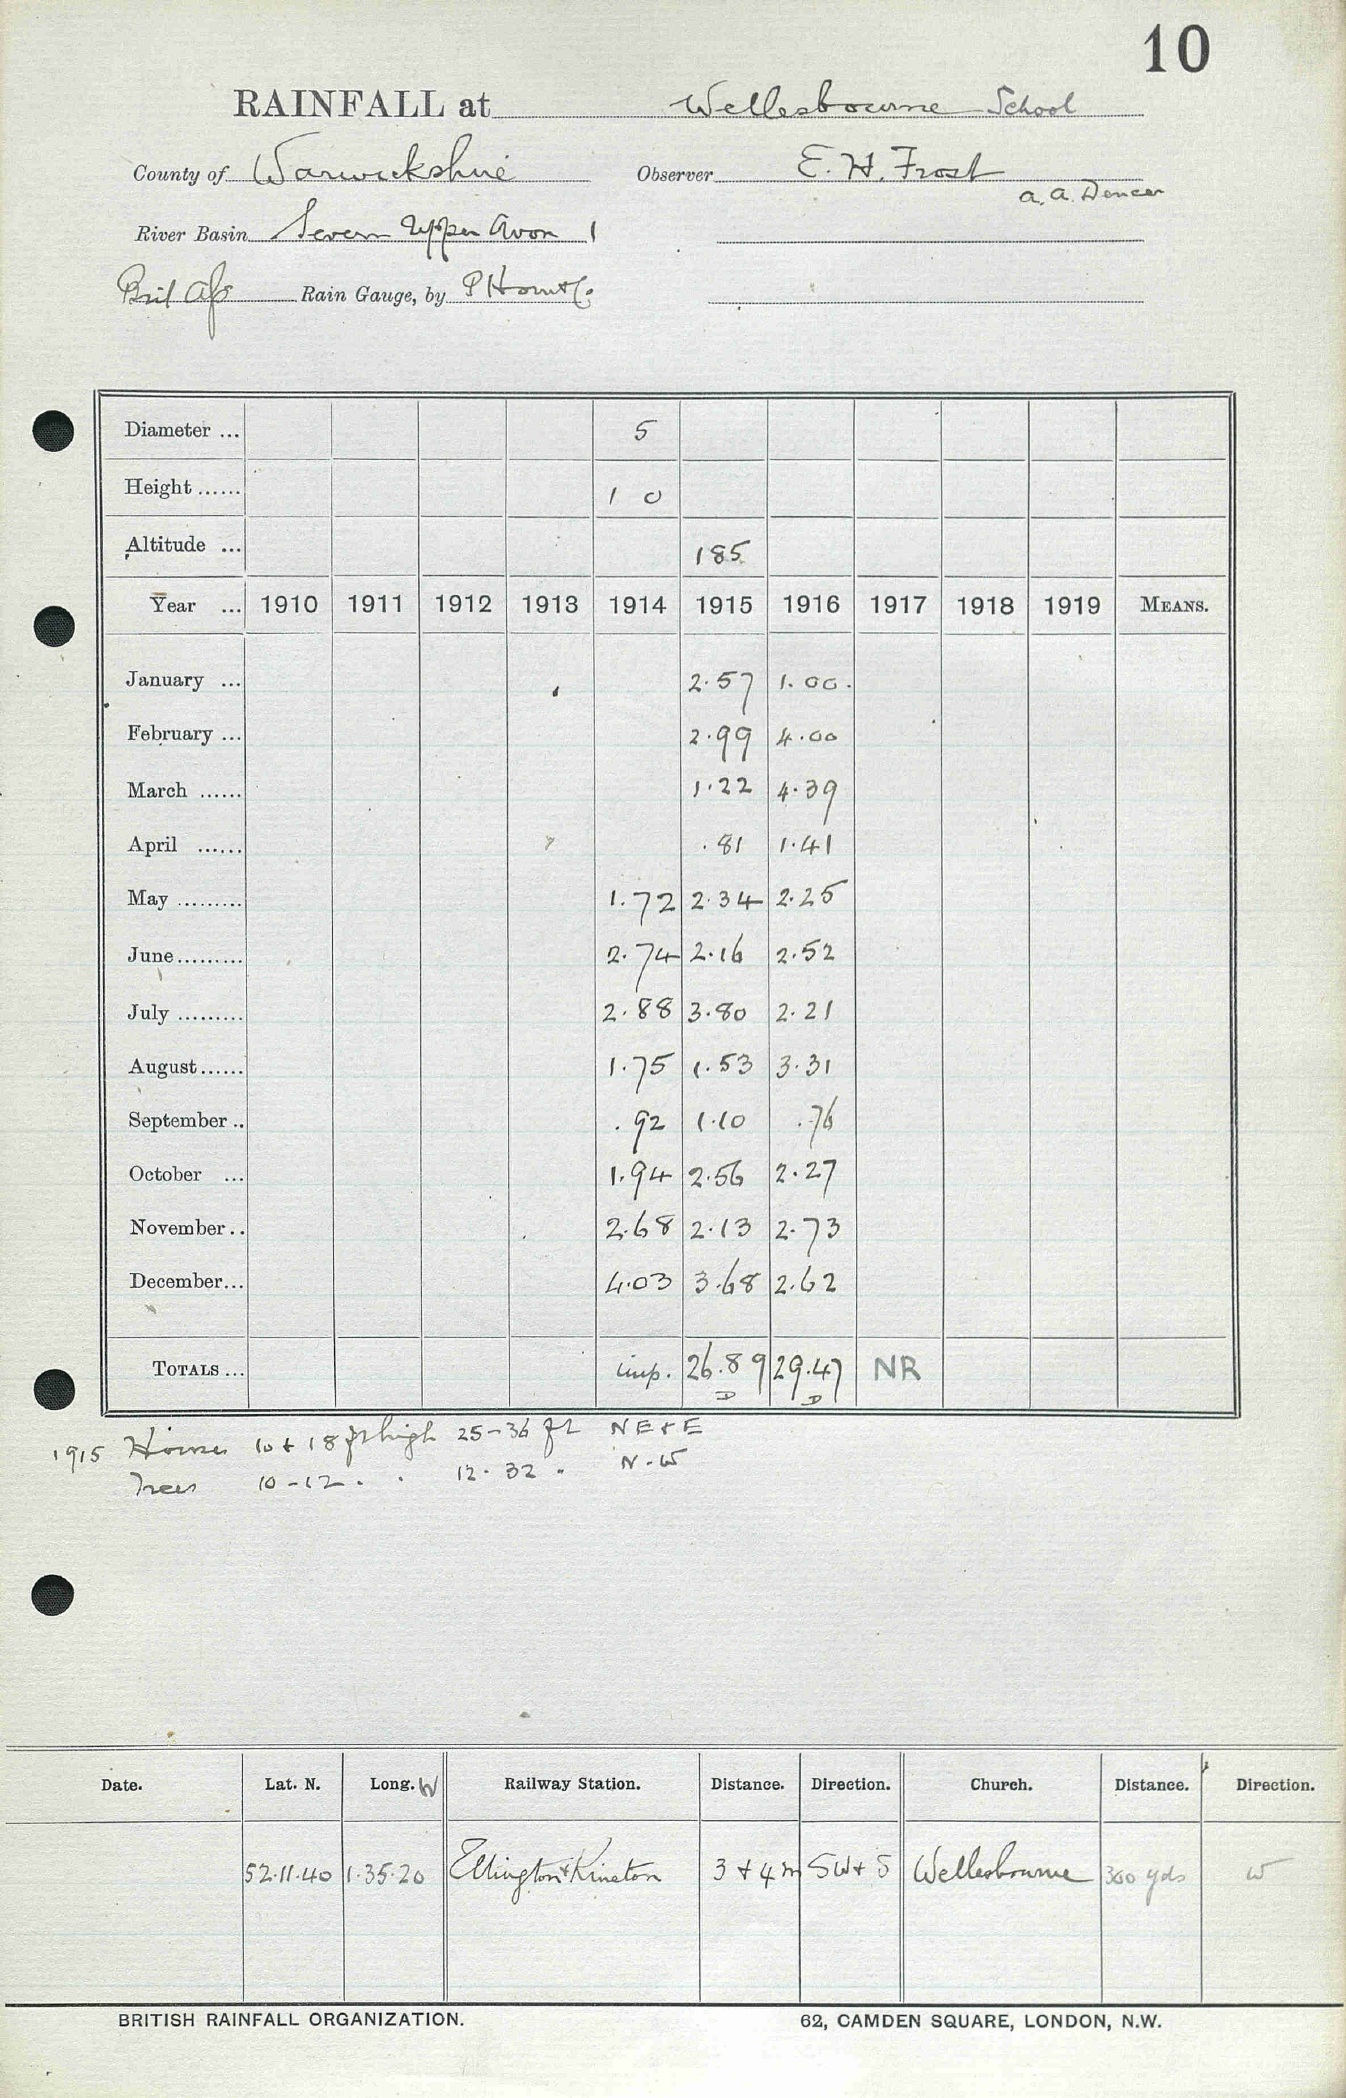 10
RAINFALL at Wellesbourne School
County of Warwickshire Observer E. H. Frost
a. a. Dencer
River Basin Severn Upper Avon 1
Brit Ass Rain Gauge, by P Horn & Co.
Diameter ... 5
Height ...... 1 0
Altitude ... 185
Year ... 1910 1911 1912 1913 1914 1915 1916 1917 1918 1919 MEANS.
January ... 2.57 1.00.
February ... 2.99 4.00
March ...... 1.22 4.39
April ...... .81 1.41
May ......... 1.72 2.34 2.25
June......... 2.74 2.16 2.52
July ......... 2.88 3.80 2.21
August...... 1.75 1.53 3.31
September .. .92 1.10 .76
October ... 1.94 2.56 2.27
November .. 2.68 2.13 2.73
December... 4.03 3.68 2.62
TOTALS ... imp. 26.89 29.47 NR
D D
1915 House 10 & 18 ft high 25-36 ft NE & E
Trees 10-12 . . 12. 32 " N-W
Date. Lat. N. Long. W Railway Station. Distance. Direction. Church. Distance. Direction.
52.11.40 1.35.20 Ettington & Kineton 3 & 4 m SW & S Wellesbourne 300 yds W
BRITISH RAINFALL ORGANIZATION. 62, CAMDEN SQUARE, LONDON, N.W.